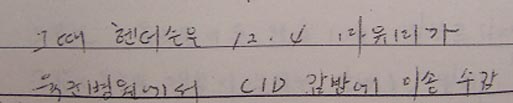 그때 헨더슨은 12.4 다우리가
육군병원에서 CID 감방에 이송 수감